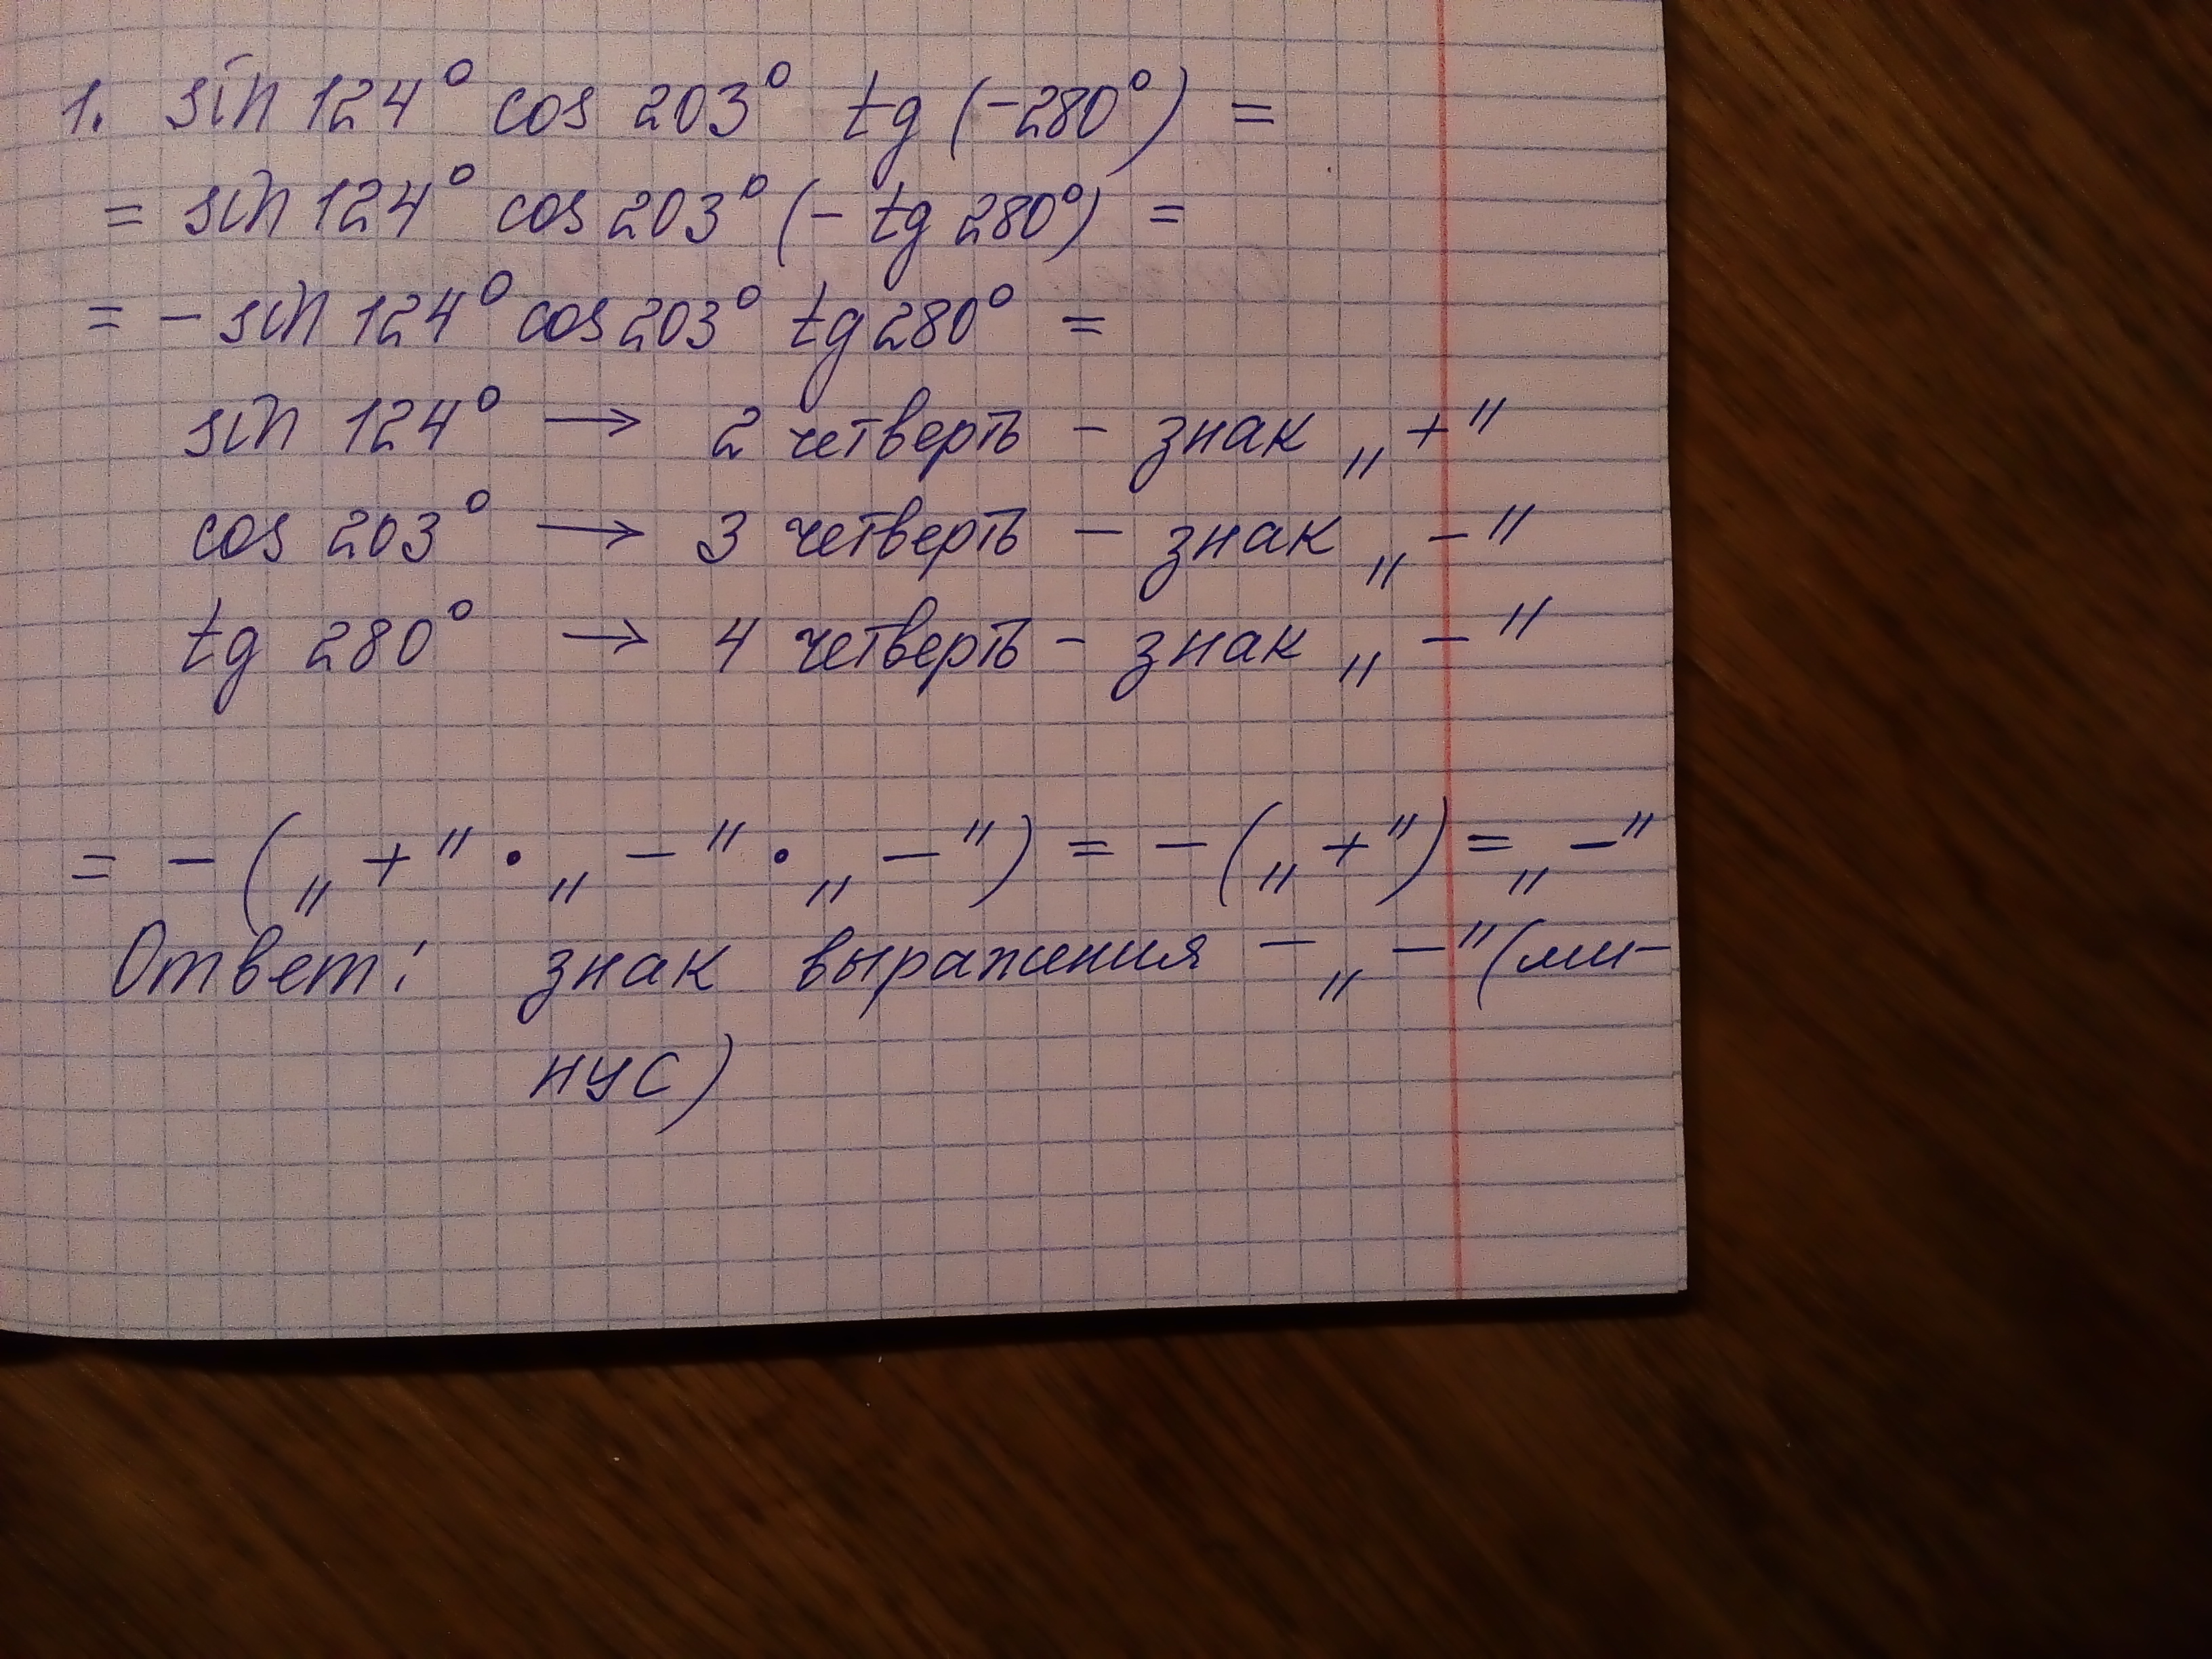 1. sin 124° cos 203° tg (-280°) =
= sin 124° cos 203° (- tg 280°) =
= - sin 124° cos 203° tg 280° =
sin 124° → 2 четверть - знак „+"
cos 203° → 3 четверть - знак „-"
tg 280° → 4 четверть - знак „-"
= - („+" · „-" · „-") = - („+") = „-"
Ответ: знак выражения - „-" (ми-
нус)